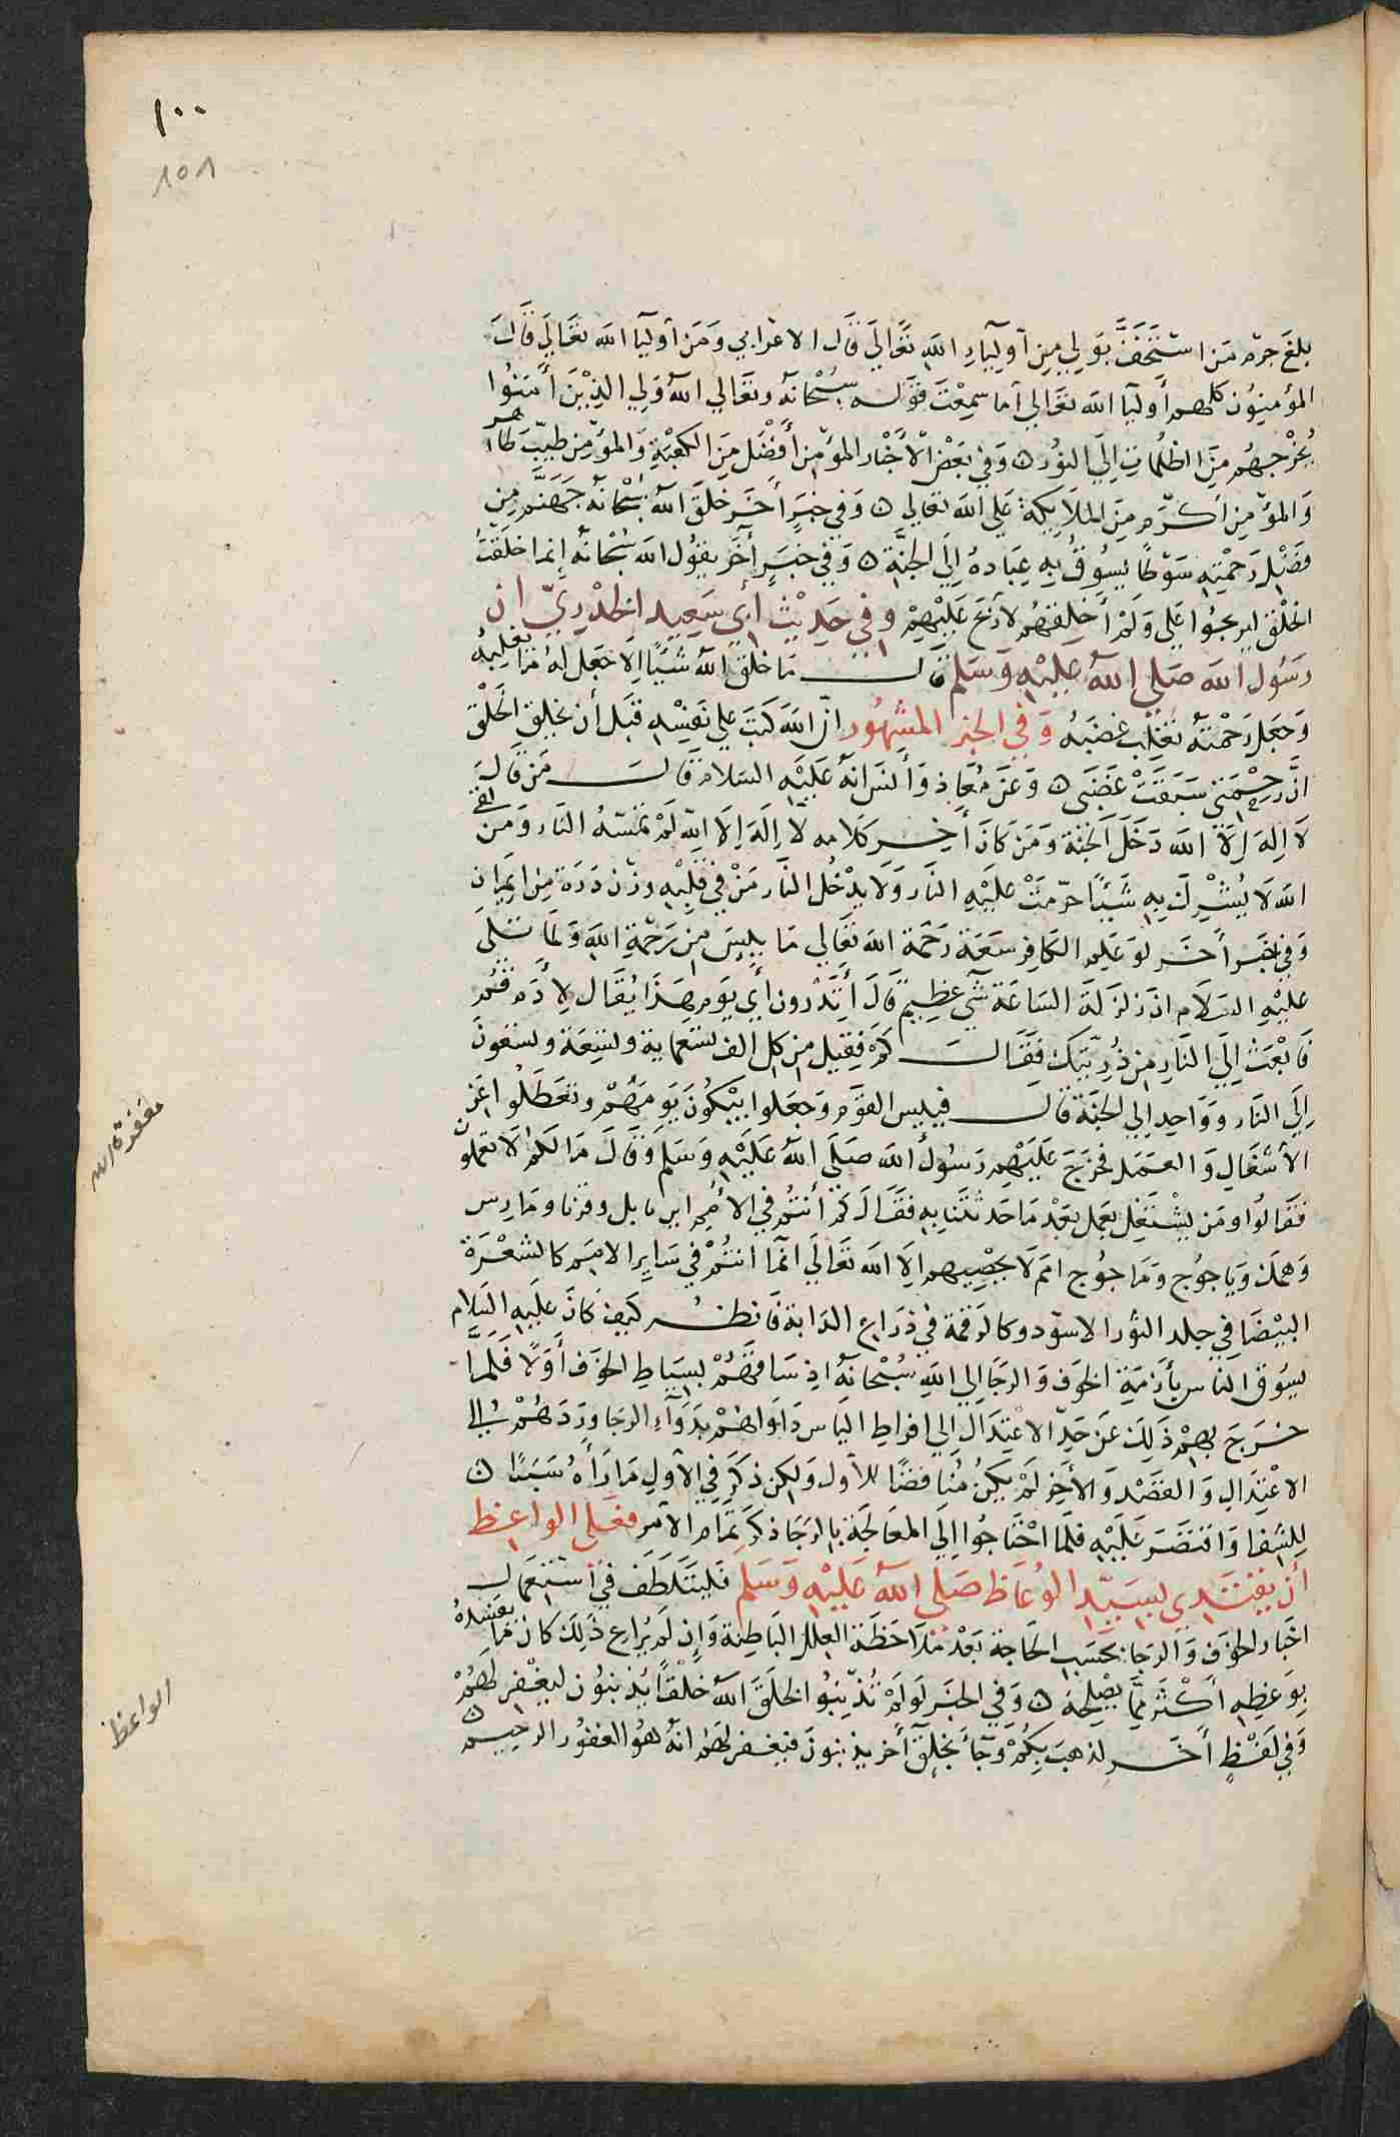 ١٠٠
101
بلغ جرم من استخف بولي من أولياء الله تعالى قال الاعرابي ومن أوليا الله تعالى قال
المؤمنون كلهم أوليا الله تعالى أما سمعت قوله سبحانه وتعالي الله ولي الذين أمنوا
يخرجهم من الظلمات إلى النور ۞ وفي بعض الأخبار المؤمن أفضل من الكعبة والمؤمن طيب طاهر
والمؤمن أكرم من الملايكة على الله تعالى ۞ وفي خبر أخر خلق الله سبحانه جهنم من
فضل رحمته سوطا يسوق به عباده إلى الجنة ۞ وفي خبر آخر يقول الله سبحانه إنما خلقت
الخلق ليربحوا علي ولم أخلقهم لأربح عليهم وفي حديث أبي سعيد الخدري ان
رسول الله صلى الله عليه وسلم قال ما خلق الله شيا الا جعل له ما يغلبه
وجعل رحمته تغلب غضبه وفي الخبر المشهور ان الله كتب على نفسه قبل أن يخلق الخلق
ان رحمتي سبقت غضبي ۞ وعن معاذ وأنس انه عليه السلام قال من قال
لا إله إلا الله دخل الجنة ومن كان أخر كلامه لا إله إلا الله لم تمسه النار ومن لقي
الله لا يشرك به شيئا حرمت عليه النار ولا يدخل النار من في قلبه وزن ذرة من ايمان
وفي خبر أخر لو علم الكافر سعة رحمة الله تعالي ما ييس من رحمة الله ولما تلى
عليه السلام ان زلزلة الساعة شي عظيم قال أتدرون أي يوم هذا يقال لأدم قم
فابعث إلى النار من ذريتك فقال كم فقيل من كل الف تسعماية وتسعة وتسعون
إلى النار وواحد إلى الجنة قال فيبس القوم وجعلوا يبكون يومهم وتعطلوا عن
الأشغال والعمل فخرج عليهم رسول الله صلى الله عليه وسلم وقال مالكم لا تعملون
فقالوا ومن يشتغل بعمل بعد ما حدثتنا به فقال كم أنتم في الأمم اين تابل وقرنا ومارس
وهملك وياجوج وماجوج امم لا يحصيهم الا الله تعالى انما انتم في ساير الامم كالشعرة
البيضا في جلد الثور الاسود وكالرقمة في ذراع الدابة فانظر كيف كان عليه السلام
يسوق الناس بأزمة الخوف والرجا إلى الله سبحانه اذ ساقهم بسياط الخوف أولا فلما
خرج بهم ذلك عن حد الاعتدال إلى افراط الياس داواهم بدواء الرجا وردهم إلى
الاعتدال والقصد والأخر لم يكن مناقضا للأول ولكن ذكر في الأول ما رأه سببا ۞
للشفا واقتصر عليه فلما احتاجوا إلى المعالجة بالرجا ذكر تمام الأمر فعلى الواعظ
أن يقتدي بسيد الوعاظ صلى الله عليه وسلم فليتلطف في أستعمال
اخبار الخوف والرجا بحسب الحاجة بعد ملاحظة العلل الباطنة وإن لم يراع ذلك كان ما يفسده
بوعظه أكثر مما يصلحه ۞ وفي الخبر لو لم تذنبوا لخلق الله خلقا يذنبون ليغفر لهم ۞
وفي لفظ أخر لذهب بكم وجأ بخلق أخر يذنبون فيغفر لهم انه هو الغفور الرحيم
الواعظ